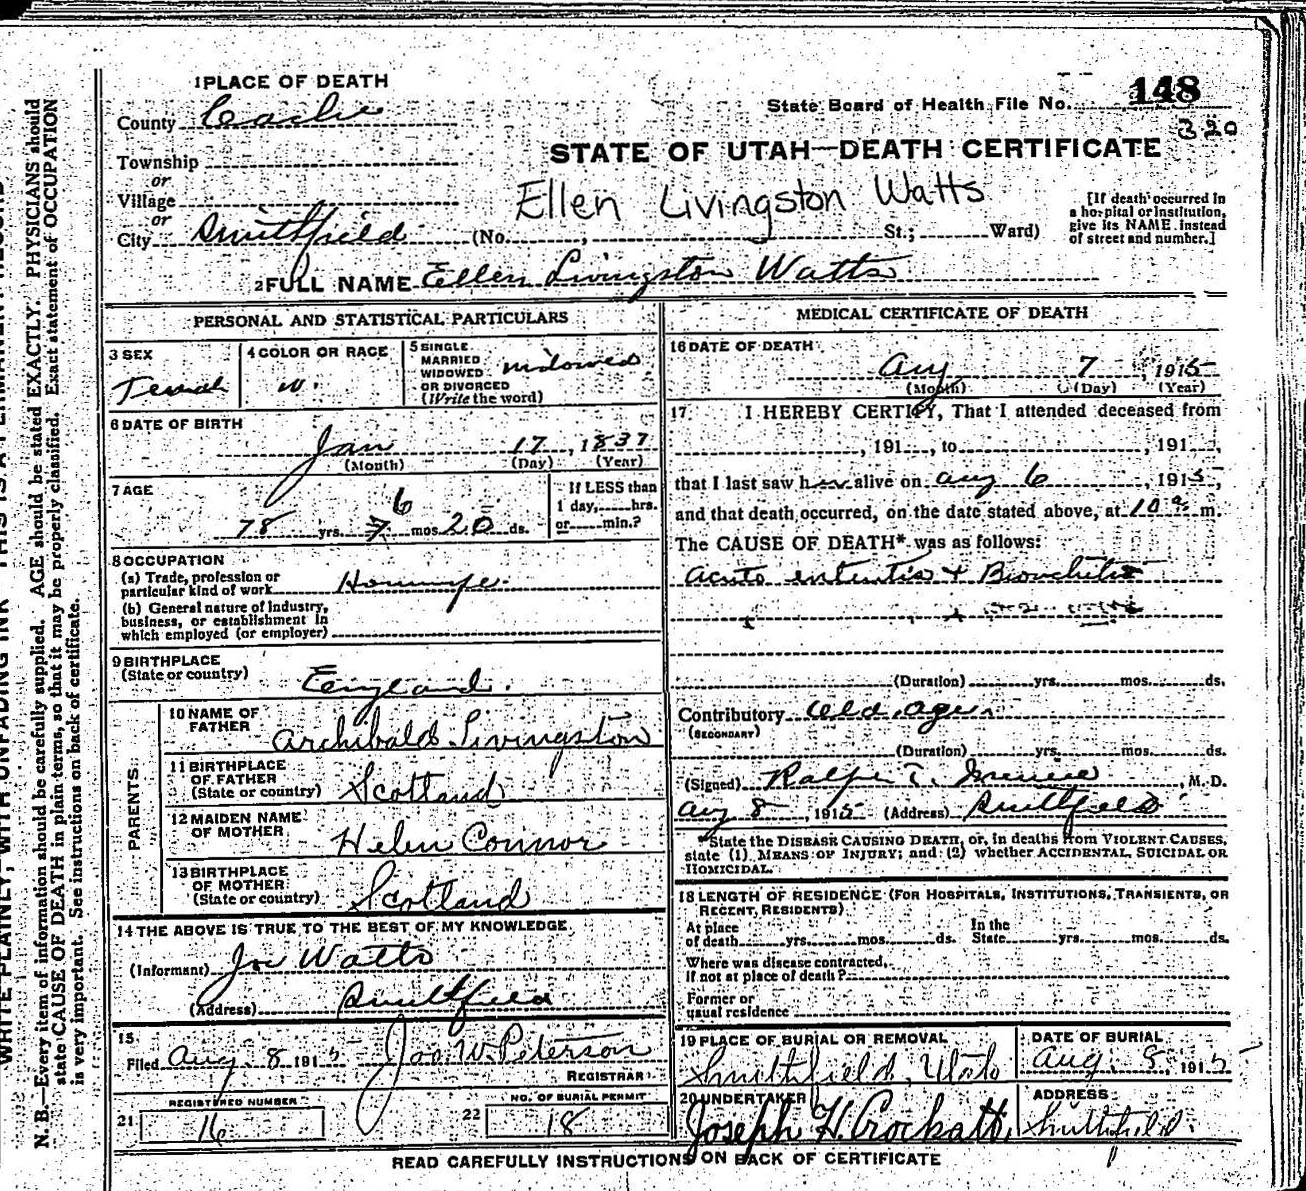 1 PLACE OF DEATH
County Cache
State Board of Health File No. 148
320
STATE OF UTAH—DEATH CERTIFICATE
Township
or
Village
or
City Smithfield (No. , St.; Ward)
Ellen Livingston Watts
[If death occurred in
a hospital or institution,
give its NAME instead
of street and number.]
2 FULL NAME Ellen Livingston Watts
PERSONAL AND STATISTICAL PARTICULARS
3 SEX
Female
4 COLOR OR RACE
w.
5 SINGLE
MARRIED
WIDOWED
OR DIVORCED
(Write the word)
widowed
6 DATE OF BIRTH
Jan 17, 1837
(Month) (Day) (Year)
7 AGE
6
78 yrs. 7 mos. 20 ds.
If LESS than
1 day, hrs.
or min.?
8 OCCUPATION
(a) Trade, profession or
particular kind of work Housewife
(b) General nature of Industry,
business, or establishment in
which employed (or employer)
9 BIRTHPLACE
(State or country)
England.
PARENTS
10 NAME OF
FATHER
Archibald Livingston
11 BIRTHPLACE
OF FATHER
(State or country) Scotland
12 MAIDEN NAME
OF MOTHER
Helen Connor
13 BIRTHPLACE
OF MOTHER
(State or country) Scotland
14 THE ABOVE IS TRUE TO THE BEST OF MY KNOWLEDGE
(Informant) Joe Watts
(Address) Smithfield
15
Filed Aug. 8 1915 Jas. W. Peterson
REGISTRAR
21 REGISTERED NUMBER
16
22 NO. OF BURIAL PERMIT
18
MEDICAL CERTIFICATE OF DEATH
16 DATE OF DEATH
Aug 7, 1915
(Month) (Day) (Year)
17 I HEREBY CERTIFY, That I attended deceased from
, 191 , to , 191 ,
that I last saw her alive on Aug 6, 1915,
and that death occurred, on the date stated above, at 10 a. m.
The CAUSE OF DEATH* was as follows:
Acute enteritis + Bronchitis
(Duration) yrs. mos. ds.
Contributory Old age.
(SECONDARY)
(Duration) yrs. mos. ds.
(Signed) Ralph T. , M. D.
Aug 8, 1915 (Address) Smithfield
*State the DISEASE CAUSING DEATH, or, in deaths from VIOLENT CAUSES,
state (1) MEANS OF INJURY; and (2) whether ACCIDENTAL, SUICIDAL OR
HOMICIDAL.
18 LENGTH OF RESIDENCE (FOR HOSPITALS, INSTITUTIONS, TRANSIENTS, OR
RECENT RESIDENTS)
At place
of death yrs. mos. ds.
In the
State yrs. mos. ds.
Where was disease contracted,
If not at place of death?
Former or
usual residence
19 PLACE OF BURIAL OR REMOVAL
Smithfield, Utah
DATE OF BURIAL
Aug. 8, 1915
20 UNDERTAKER
Joseph H. Crockatt,
ADDRESS
Smithfield.
READ CAREFULLY INSTRUCTIONS ON BACK OF CERTIFICATE
WRITE PLAINLY, WITH UNFADING INK THIS IS A PERMANENT RECORD
N. B.—Every item of information should be carefully supplied. AGE should be stated EXACTLY. PHYSICIANS should
state CAUSE OF DEATH in plain terms, so that it may be properly classified. Exact statement of OCCUPATION
is very important. See instructions on back of certificate.